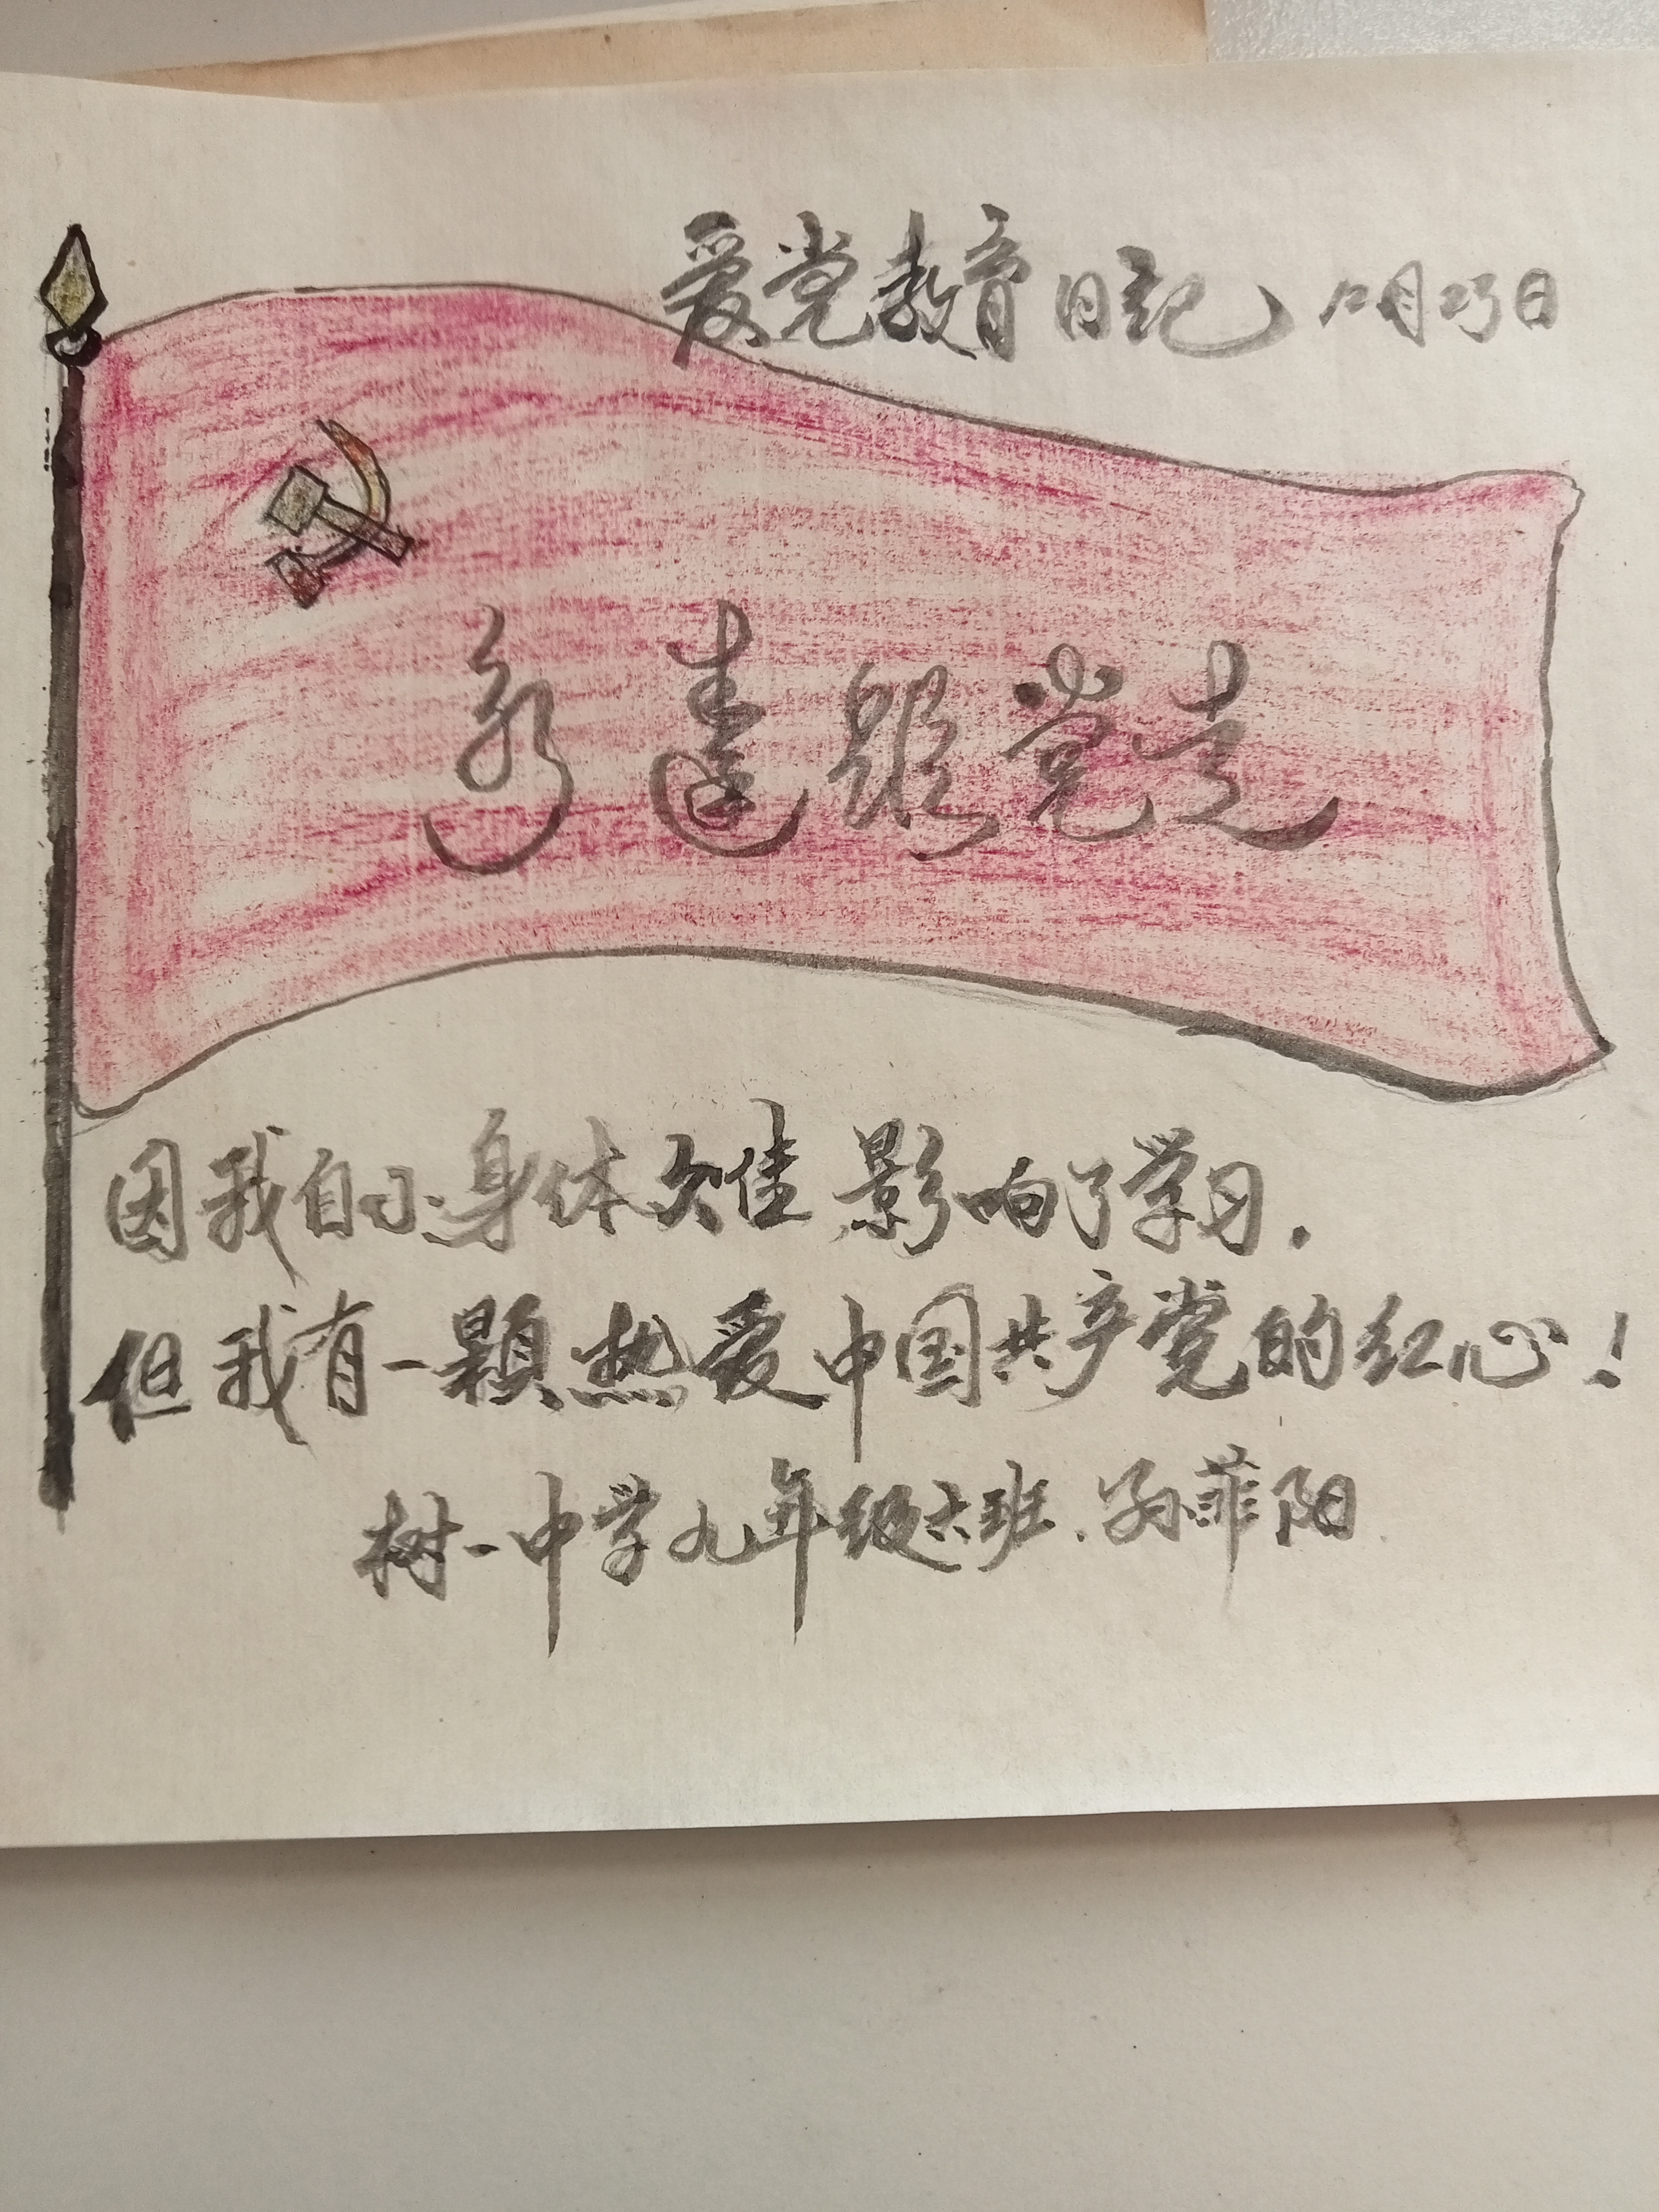 爱党教育日记 12月25日
永远跟党走
因我自小身体欠佳影响了学习.
但我有一颗热爱中国共产党的红心!
树一中学九年级六班.孙菲阳